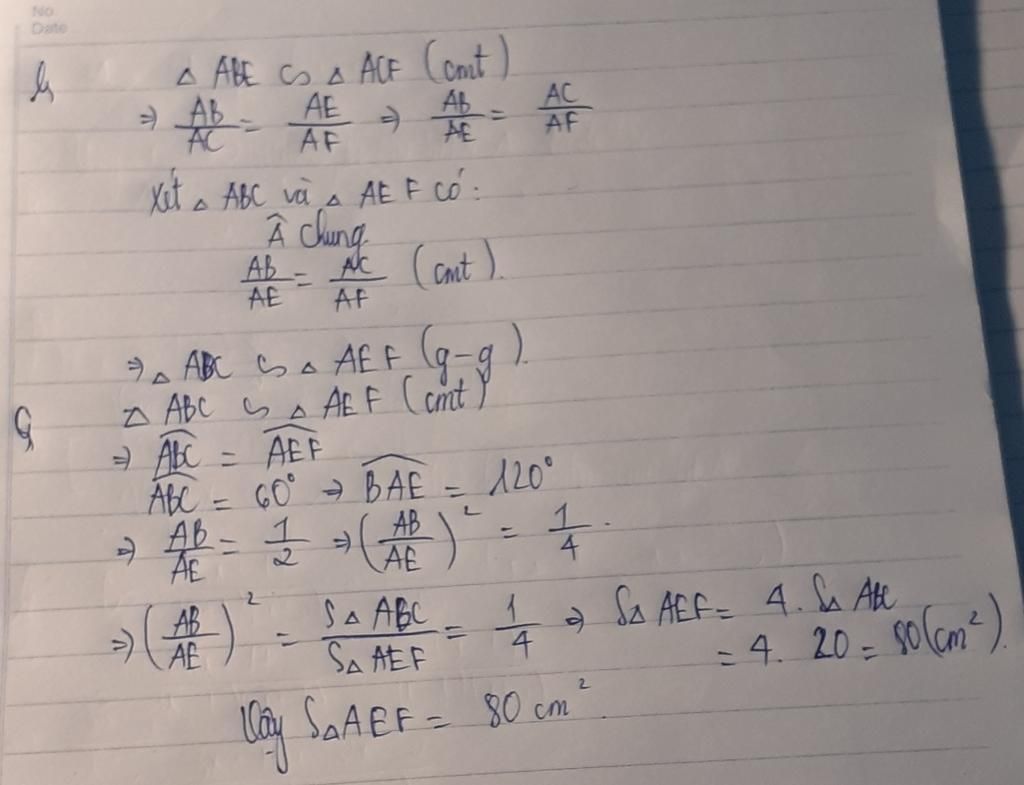 No.
Date
b, △ ABE ∽ △ ACF (cmt)
⇒ AB/AC = AE/AF ⇒ AB/AE = AC/AF
Xét △ ABC và △ AEF có:
Â chung
AB/AE = AC/AF (cmt).
⇒ △ ABC ∽ △ AEF (g-g).
c, △ ABC ∽ △ AEF (cmt)
⇒ \widehat{ABC} = \widehat{AEF}
\widehat{ABC} = 60° ⇒ \widehat{BAE} = 120°
⇒ AB/AE = 1/2 ⇒ (AB/AE)² = 1/4.
⇒ (AB/AE)² = S△ ABC/S△ AEF = 1/4 ⇒ S△ AEF = 4. S△ ABC
= 4. 20 = 80 (cm²).
Vậy S△AEF = 80 cm².